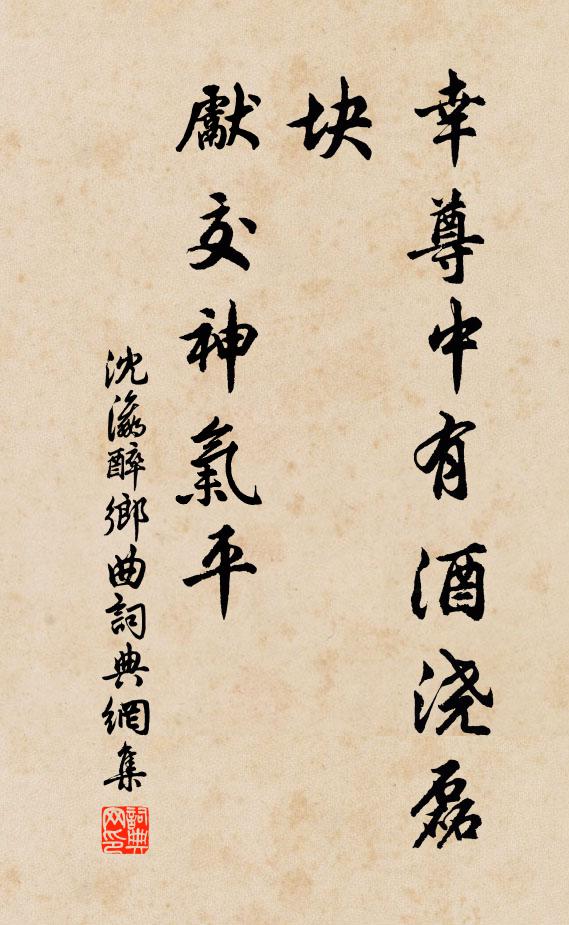 幸尊中有酒浇磊
块
献交神氣平
沈瀛醉鄉曲詞典網集
詞典
网印